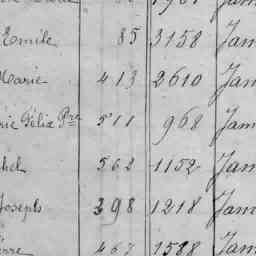 Emile 85 3158 Jam
Marie 413 2610 Jam
rie Félix Pre 511 968 Jam
hel 562 1152 Jam
Joseph 398 1218 Jam
rre 467 1588 Jam